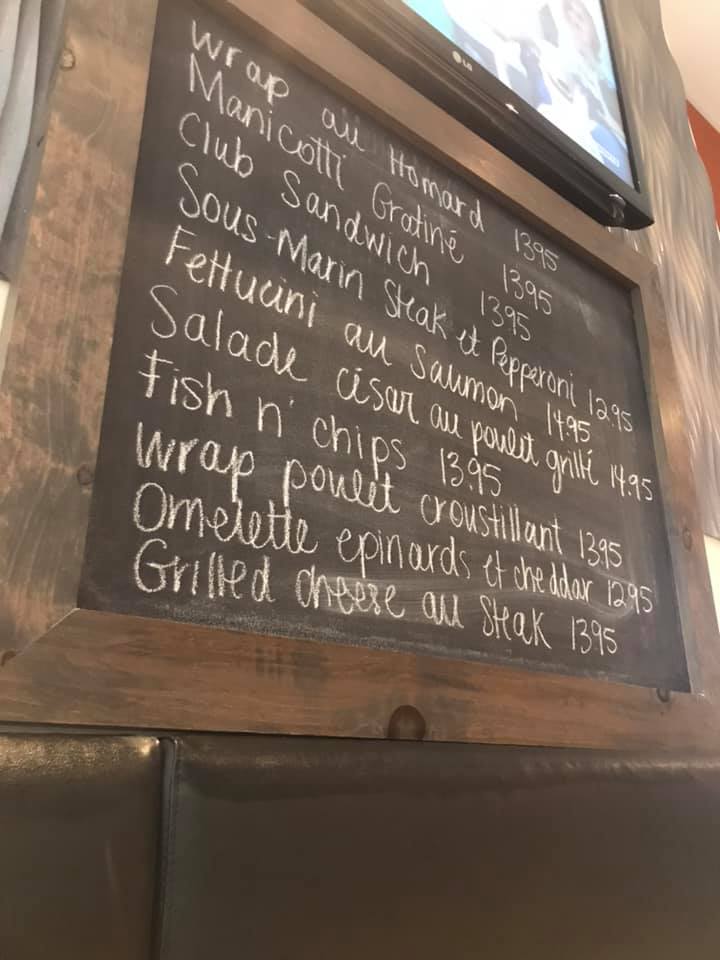 LG
Wrap au Homard 1395
Manicotti Gratiné 1395
Club Sandwich 1395
Sous-Marin Steak et Pepperoni 12.95
Fettucini au Saumon 14.95
Salade césar au poulet grillé 14.95
Fish n' chips 13.95
Wrap poulet croustillant 13.95
Omelette epinards et cheddar 1295
Grilled cheese au Steak 1395